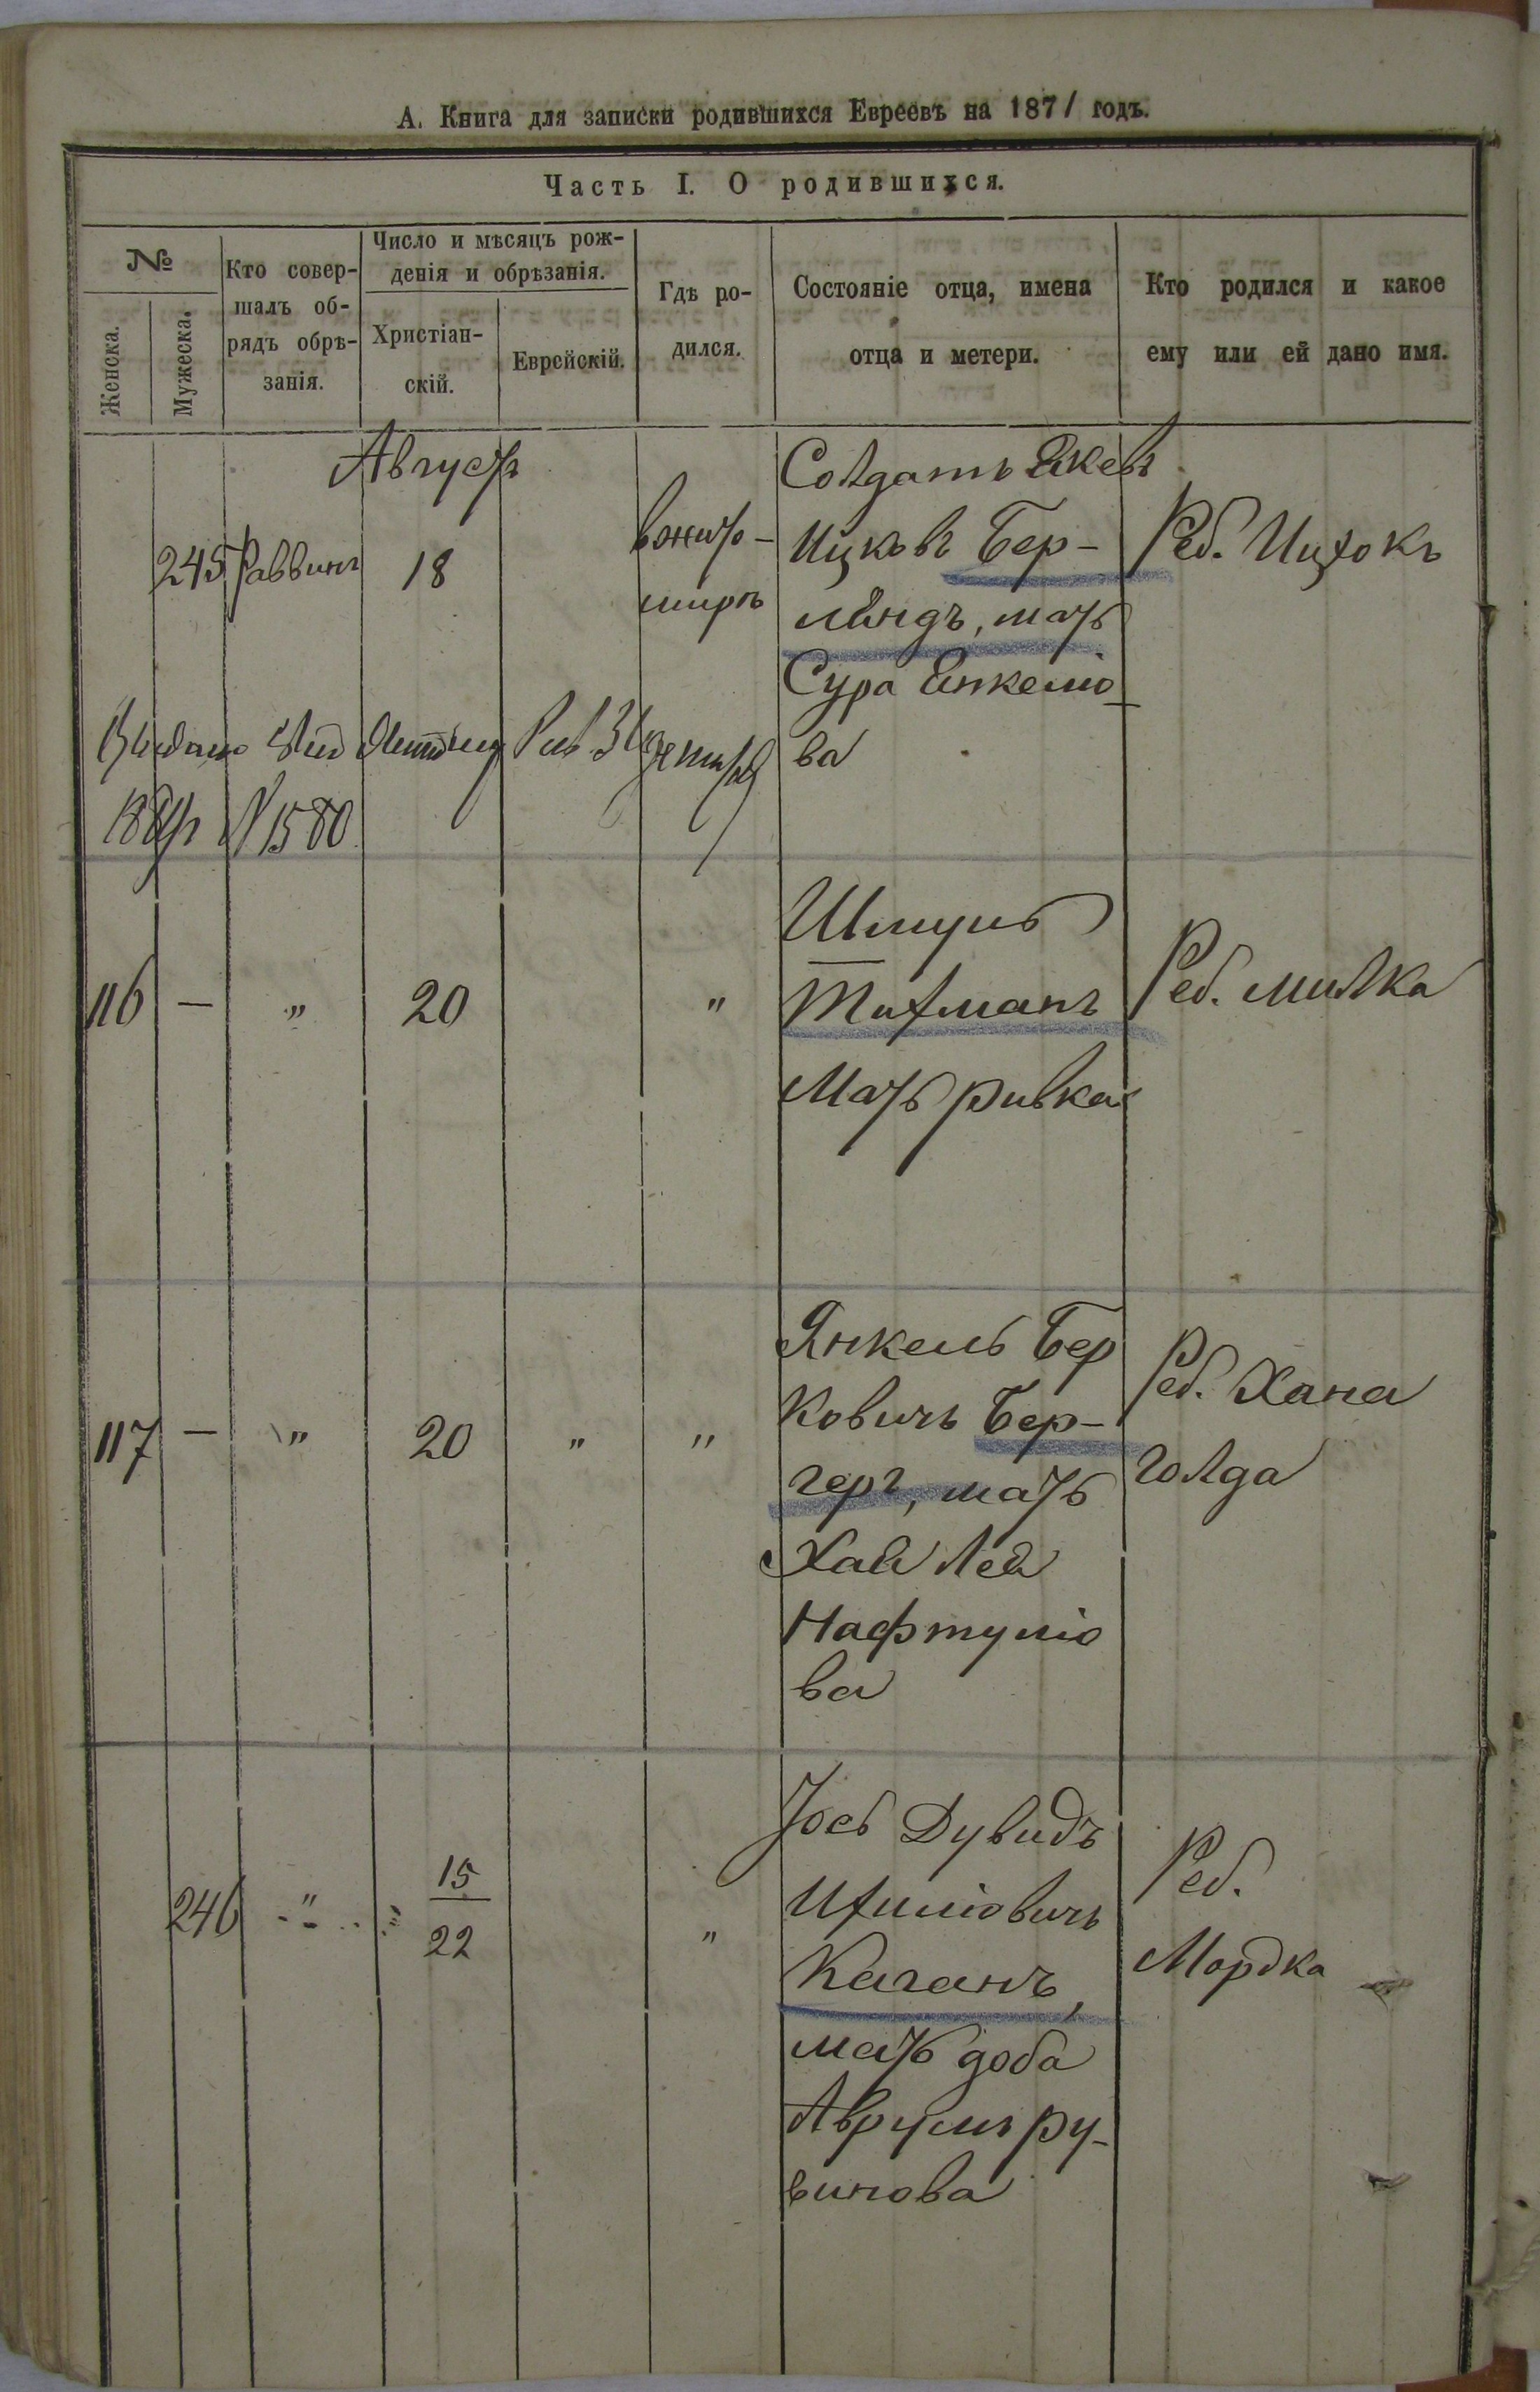 А. Книга для записки родившихся Евреевъ на 1871 годъ.
Часть I. О родившихся.
№
Женска.
Мужеска.
Кто совер-
шалъ об-
рядъ обрѣ-
занія.
Число и мѣсяцъ рож-
денія и обрѣзанія.
Христіан-
скій.
Еврейскій.
Гдѣ ро-
дился.
Состояніе отца, имена
отца и метери.
Кто родился и какое
ему или ей дано имя.
Августъ
245 Раввинъ 18
в жито-
мирѣ
Солдатъ
Ицковъ Бер-
ландъ, мать
Сура Енкеліо
ва
Реб. Ицхокъ
Выдано
N 1580
116 — " 20 "
Шмуль
Тихманъ
Мать ривка
Реб. милка
117 — " 20 " "
Янкель Бер
ковичъ Бер-
герг, мать
Хая Лея
Нафтуліо
ва
Реб. Хана
голда
246 " 15
22
"
Іось Дувидъ
Ихиліовичъ
Каганъ,
мать доба
Аврумъ ру-
винова
Реб.
Мордка